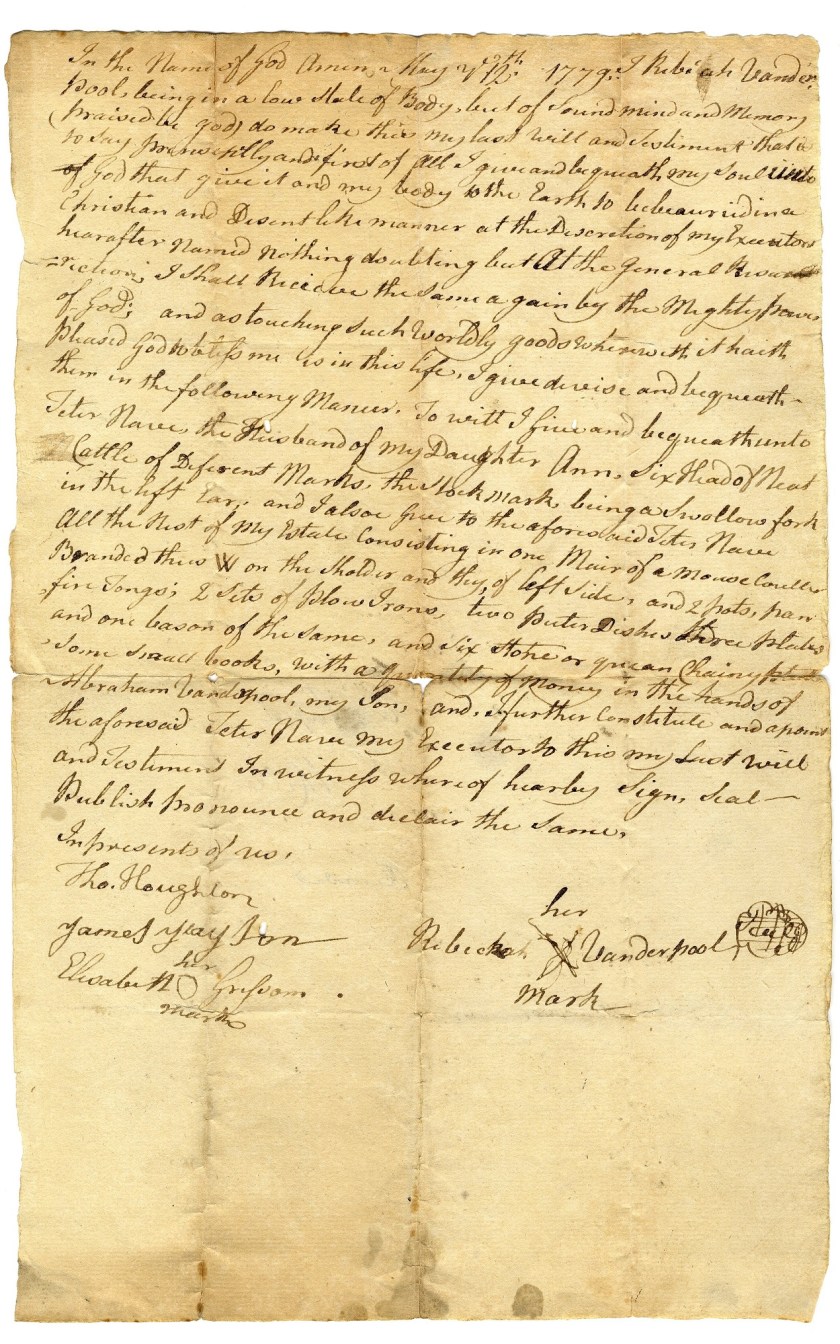 In the Name of God Amen, May ye 12th 1779. I Rebicah Vander
Pool being in a low State of Body, but of Sound mind and Memory
(praised be god) do make this my last Will and Testiment that is
to Say princepilly and first of All I give and bequeath my Soul unto
of God that give it and my body to the Earth to be beauried in a
Christian and Desent like manner at the Discretion of my Executors
hearafter Named nothing doubting but At the General Resur
rection, I Shall Recieve the Same again by the Mighty power
of God; and as touching Such Worldly goods wherewith it haith
pleased God to bless me in this life, I give devise and bequeath
them in the following Maner. To will I give and bequeath unto
Teter Nave the Husband of my Daughter Ann, Six Head of Neat
Cattle of Deferent Marks, the Stock mark being a Swallow fork
in the left Ear, and I alsoe Give to the aforesaid Teter Nave
All the Rest of my Estate Consisting in one Mair of a Mouse Couller
Branded thus W on the Sholder and thy, of left Side, and 2 pots, pan
fire Tongs; 2 Sets of Plow Irons, two Puter Dishes three plates
and one bason of the Same, and Six Stone or quean Chainy plates
Some Small books, with a quantity of Money in the hands of
Abraham Vanderpool, my Son, and, I further Constitute and apoint
the aforesaid Teter Nave my Executor to this my Last will
and Testiment In witness where of hearby Sign, Seal
Publish pronounce and declair the Same,
In presents of us,
Tho. Houghton
James
Elisabeth her Grissom
mark
her
Rebeckah Vanderpool
Mark